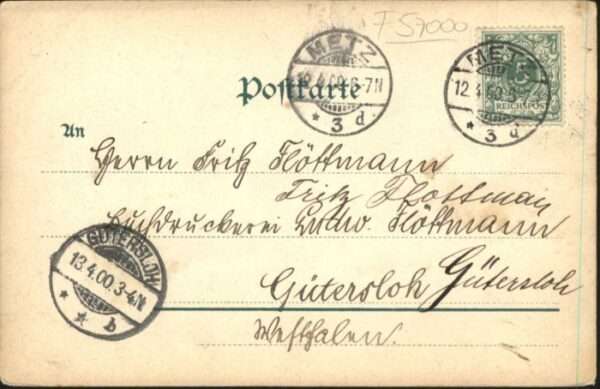 F 57000
METZ
12.4.00.6-7N
* 3 d
METZ
12.4.00.6-
* 3 d
5
REICHSPOST
Postkarte
An
Herrn Fritz Flöttmann
Fritz Flottman
Buchdruckerei Ludw. Flöttmann
Gütersloh Gütersloh
Westfalen.
GÜTERSLOH
13.4.00.3-4N
* * b